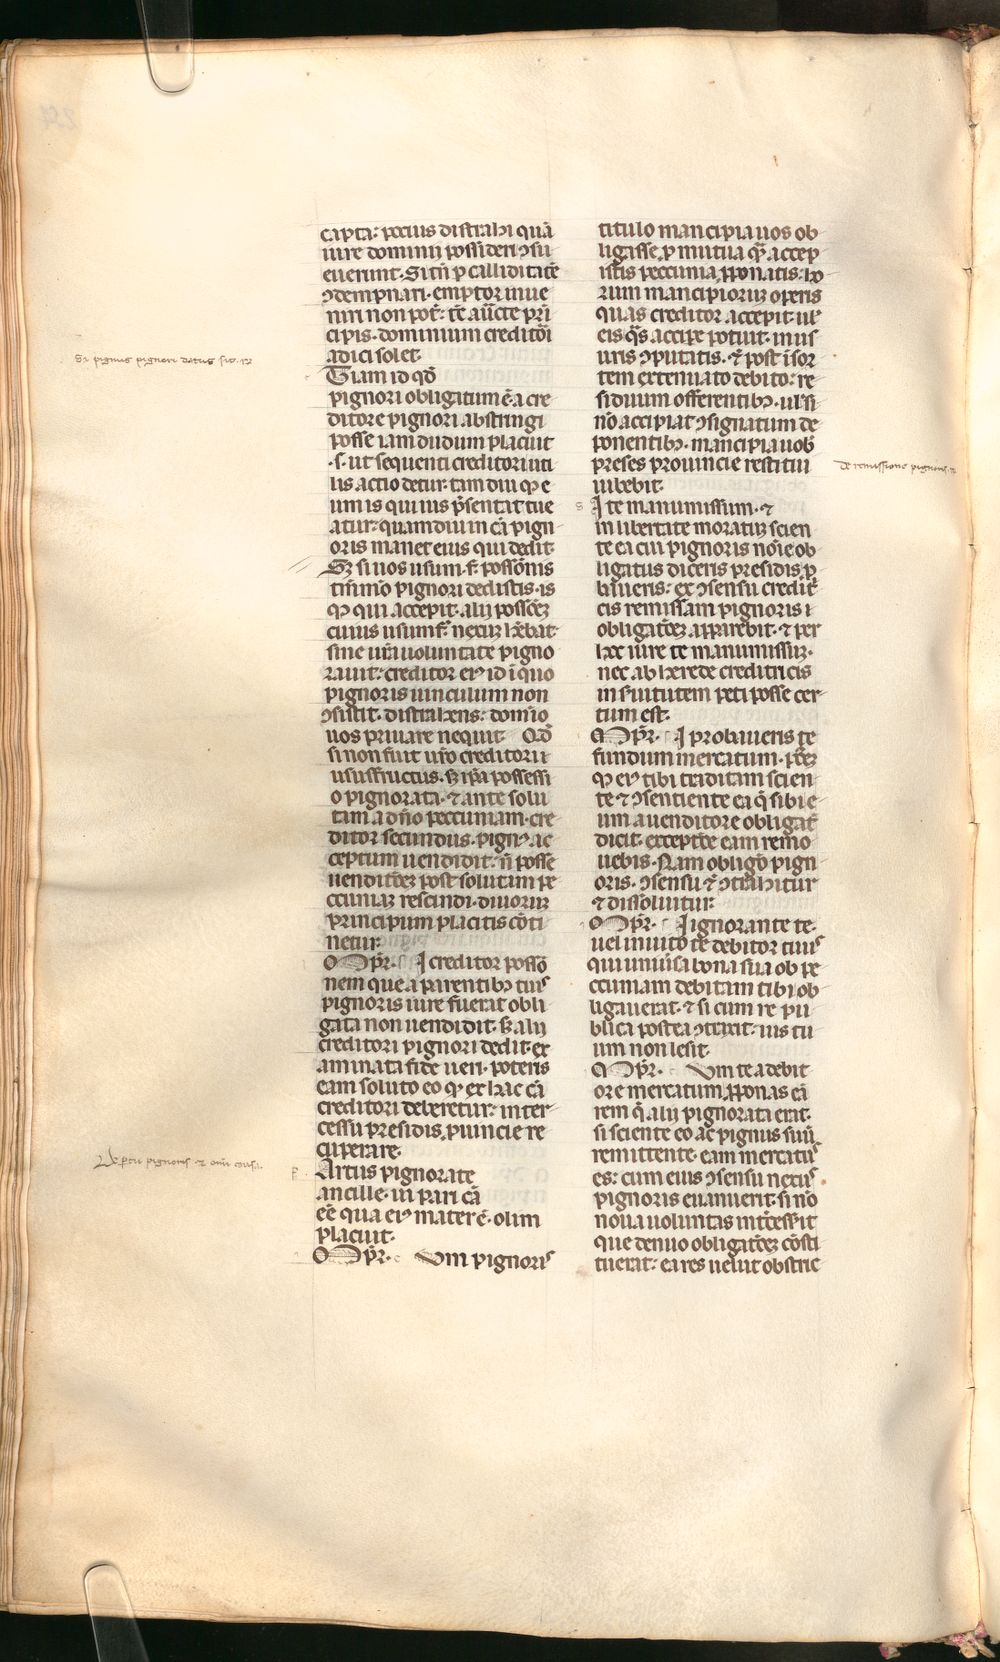 capta: pocius distrahi quā
iure dominii possideri ɔsu
euerunt. Si tn̄ p calliditatē
ɔdempnari. emptor inue
niri non pot̄: tc̄ aucte pri
cipis. dominium creditōi
adici solet.
Si pignus pignori datus sit. rͣ
Tiam id qd̄
pignori obligatum ē a cre
ditore pignori abstringi
posse iam dudum placuit
.s. ut sequenti creditori uti
lis actio detur. tam diu qꝫ e
um is qui ius p̄sentat tue
atur: quamdiu in cā pign
oris manet eius qui dedit.
Sꝫ si uos usum f. possōnis
tm̄mō pignori dedistis. is
qꝫ qui accepit. alij possōeꝫ
cuius usumf. nexuꝫ hēbat
sine ur̄a uoluntate pigno
rauit: creditor eiꝰ id ī quo
pignoris uinculum non
ɔsistit. distrahens: domīo
uos priuare nequit. Qd̄
si non fuit ur̄o creditori i
ususfructus. sꝫ ip̄a possessi
o pignorata. ⁊ ante solu
tam a dn̄o peccuniam. cre
ditor secundus. pignꝰ ac
ceptum uendidit: n̄ posse
uenditōeꝫ post solutam pe
ccuniaꝫ rescindi. diuoruꝫ
principum placitis cōti
netur.
O Pꝑr. I creditor possō
nem que a parentibꝫ tuis
pignoris iure fuerat obli
gata non uendidit. sꝫ alij
creditori pignori dedit. ex
aminata fide ueri. poteris
eam soluto eo qꝫ ex hac cā
creditori deberetur: inter
cessu presidis ꝓuincie re
cuperare.
De ptu pignoris ⁊ om̄i causa.
Artus pignorate
ancille. in pari cā
eē qua eiꝰ mater ē. olim
placuit.
O Pꝑr. Vm pignoris
titulo mancipia uos ob
ligasse. ꝑ mutua qꝫ accep
istis peccunia, ꝓponatis: ho
rum mancipioruꝫ operis
quas creditor accepit. uł
eis q̄s accipe potuit. in us
uris ɔputatis. ⁊ post ī sor
tem extenuato debito: re
siduum offerentibꝫ. uł si
nō accipiat ɔsignatum de
ponentibꝫ. mancipia uob̄
preses prouincie restitui
iubebit.
De remissione pignoris. rͣ
I te manumissum. ⁊
in libertate moratuꝫ scien
te ea cui pignoris nōie ob
ligatus diceris presidis ꝓ
baueris: ex ɔsensu credit̄
cis remissam pignoris i
obligatōeꝫ apparebit. ⁊ per
hoc iure te manumissuꝫ.
nec ab herede creditricis
in s̄uitutem peti posse cer
tum est.
O Pꝑr. I probaueris te
fundum mercatum. ptēꝫ
qꝫ eiꝰ tibi traditam scien
te ⁊ ɔsentiente ea q̄ sibi e
um a uenditore obligat̄
dicit. exceptōe eam remo
uebis. Nam obligo pign
oris. ɔsensu ⁊ ɔtrahitur
⁊ dissoluitur.
O Pꝑr. I ignorante te.
uel inuito te debitor tuus
qui uniu̅sa bona sua ob pe
ccuniam debitam tibi ob
ligauerat. ⁊ si cum re pu
blica postea ɔtraxit: ius tu
um non lesit.
O Pꝑr. Vm te a debit
ore mercatum ꝓponas eā
rem q̄ alij pignorata erat.
si sciente eo ac pignus suū
remittente. eam mercatus
es: cum eius ɔsensu nexus
pignoris euanuerit. si nō
noua uoluntas int̄cess̄it
que denuo obligatōeꝫ cōsti
tuerat: ea res uelut obstric